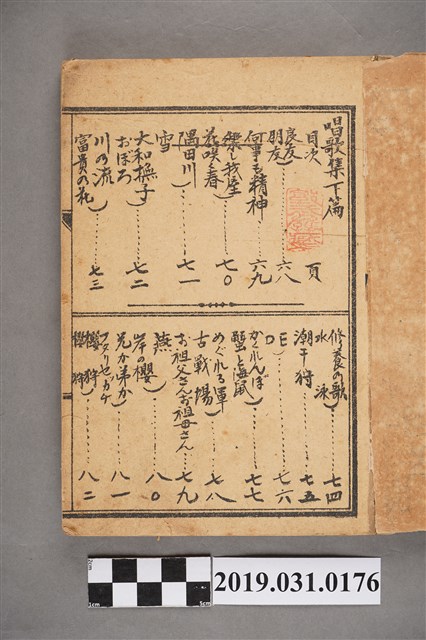 唱歌集下篇
目次 頁
良友
朋友)……六八
何事も精神……六九
樂しき我屋
花咲く春)……七〇
隅田川……七一
雪
大和撫子)……七二
おぼろ
川の流
富貴の花)……七三
修養の歌……七四
水泳
潮干狩……七五
かくれんぼ
蟹と海鼠)……七七
めぐれる軍……七八
古戰場
お祖父さんお祖母さん……七九
燕
岸の櫻)……八〇
兄か弟か……八一
フタリセカケ
櫻狩……八二
2cm
1cm
5cm
2019.031.0176